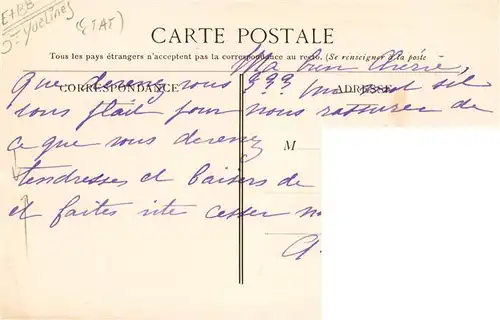 E+BB
St Yvelines
(ETAT)
CARTE POSTALE
Tous les pays étrangers n'acceptent pas la correspondance au recto. (Se renseigner à la poste
Ma bien chérie,
CORRESPONDANCE
ADRESSE
que devenez vous ??? mot sil
vous plait pour nous rassurer de
ce que vous devenez
M
tendresses et baisers de
et faites vite cesser n